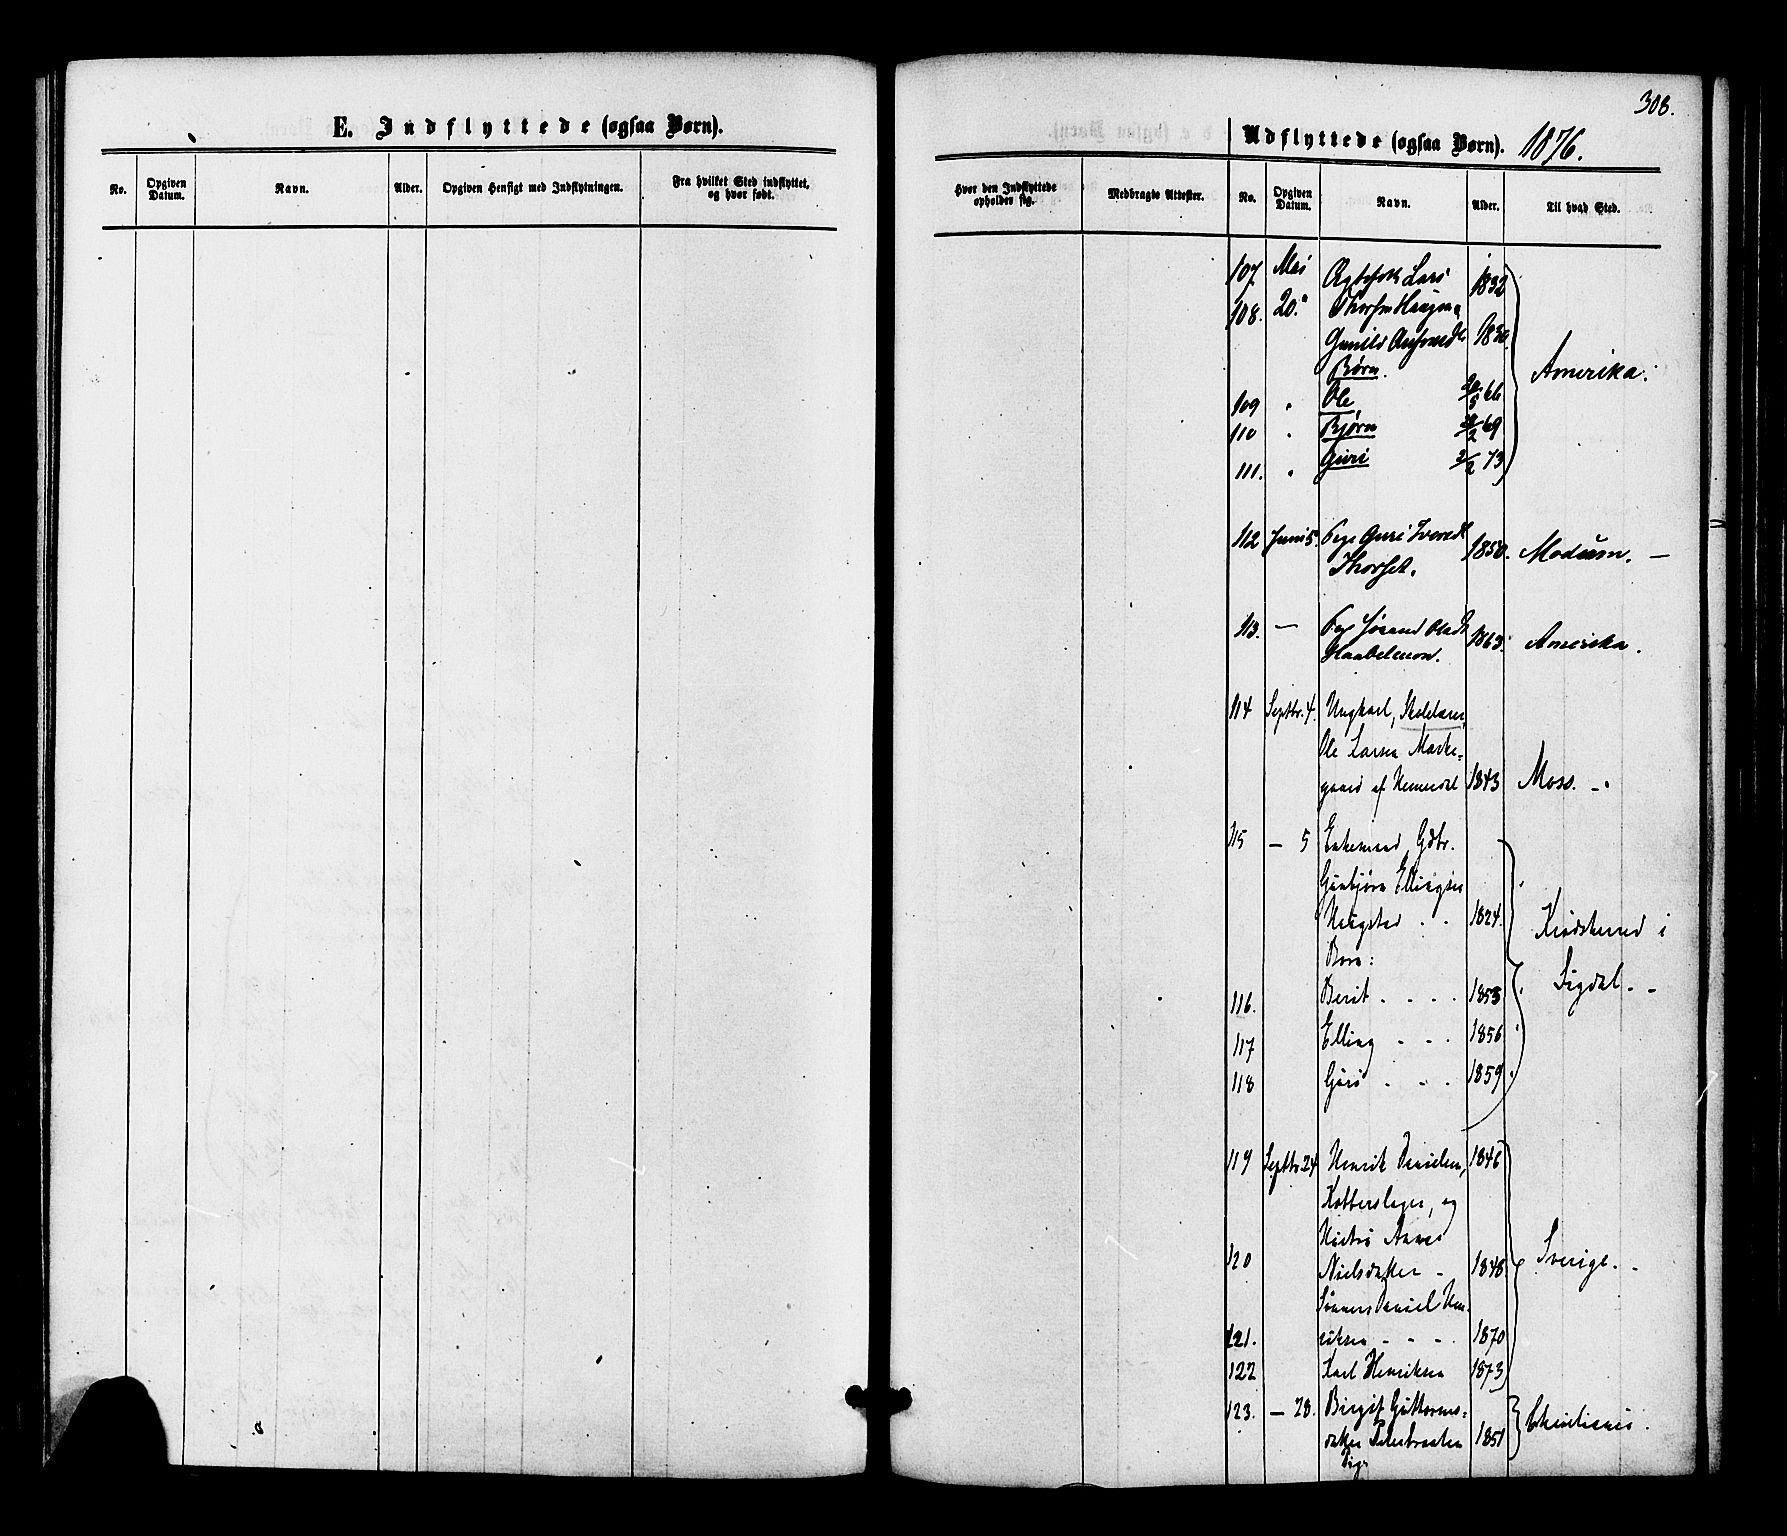 308.
E. Indflyttede (ogsaa Børn).
No.
Opgiven Datum.
Navn.
Alder.
Opgiven Hensigt med Indflytningen.
Fra hvilket Sted indflyttet, og hvor født.
Udflyttede (ogsaa Børn). 1876.
Hvor den Indflyttede opholder sig.
Medbragte Attester.
No.
Opgiven Datum.
Navn.
Alder.
Til hvad Sted.
107 Mai Lars 1832
108. 20.
Gunild 1830
Børn.
Amerika.
109 " Ole 66
110 " Bjørn 69
111. " Guri 2/2 73
112 Juni 5. Pige Guri Iversd. 1850. Modum. —
Thorset.
113. — Pige Jørand Olsd. 1863. Amerika.
114 Septbr. 4. Ungkarl, Skolelærer,
Ole Larsen Marke-
gaard af Hemsedal 1843 Moss. —
115 — 5 Enkemand, Gdbr.
Gunbjørn Ellingsen
Haugstad . . 1824. Krødsherred i
Børn:
Sigdal. —
116. Berit . . . 1853
117 Elling - - . 1856
118 Guri . . . 1859
119 Septbr. 24 Henrik Danielsen, 1846
Kobberslager, og
Hustru Anne
120 Nielsdatter - 1848. Sverige. -
Sønner: Daniel Hen-
121. riksen - - . 1870
122 Karl Henriksen 1873
123. — 28. Birgit Guttorms- Christiania.
datter 1851
Pige